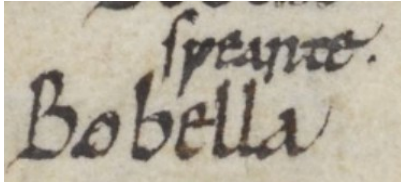 speante.
Bobella